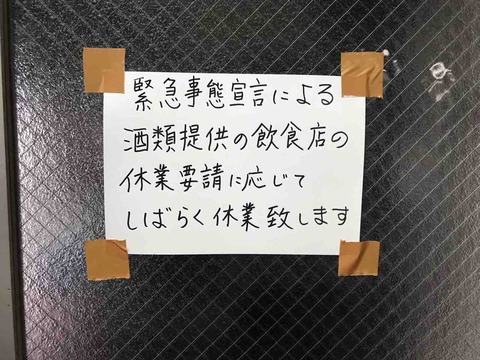 緊急事態宣言による
酒類提供の飲食店の
休業要請に応じて
しばらく休業致します